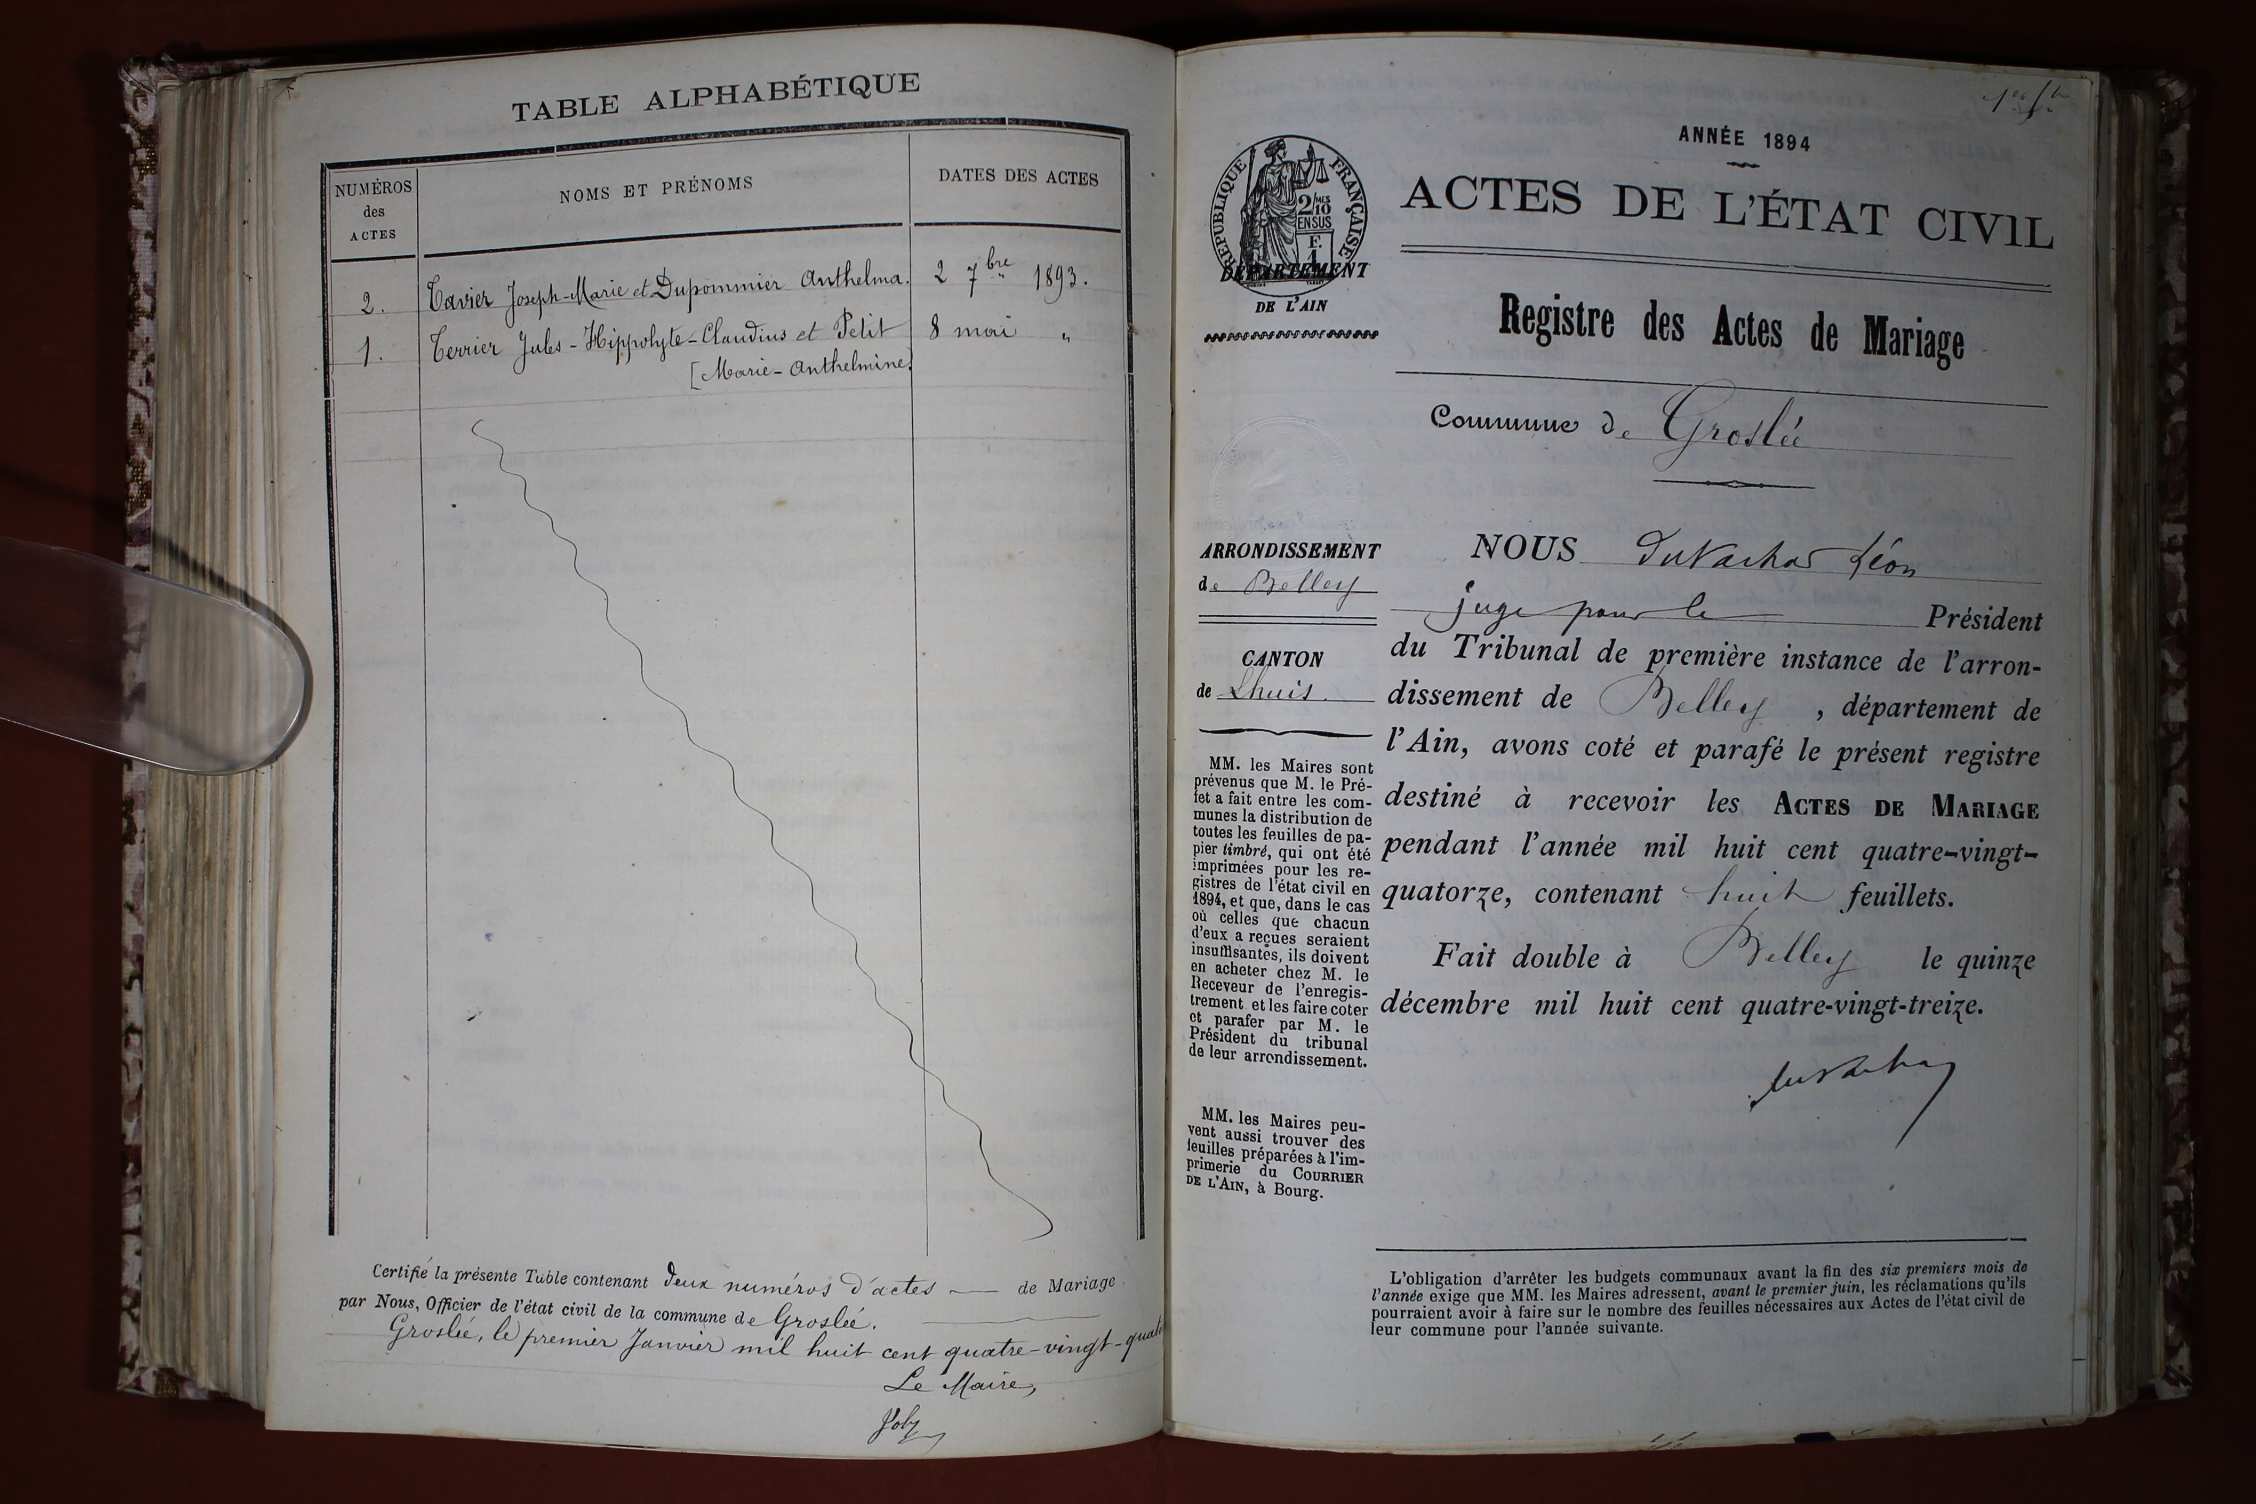 TABLE ALPHABÉTIQUE
NUMÉROS
des
ACTES
NOMS ET PRÉNOMS
DATES DES ACTES
2. Tavier Joseph-Marie et Dupommier Anthelma. 2 7bre 1893.
1. Terrier Jules-Hippolyte-Claudius et Petit 8 mai "
[Marie-Anthelmine.
Certifié la présente Table contenant deux numéros d'actes — de Mariage
par Nous, Officier de l'état civil de la commune de Groslée.
Groslée, le premier Janvier mil huit cent quatre-vingt-quato
Le Maire,
ANNÉE 1894
ACTES DE L'ÉTAT CIVIL
RÉPUBLIQUE FRANÇAISE
2/MES
10
EN SUS
DÉPARTEMENT
DE L'AIN
Registre des Actes de Mariage
Commune de Groslée
ARRONDISSEMENT
de Belley
CANTON
de Lhuis.
MM. les Maires sont
prévenus que M. le Pré-
fet a fait entre les com-
munes la distribution de
toutes les feuilles de pa-
pier timbré, qui ont été
imprimées pour les re-
gistres de l'état civil en
1894, et que, dans le cas
où celles que chacun
d'eux a reçues seraient
insuffisantes, ils doivent
en acheter chez M. le
Receveur de l'enregis-
trement et les faire coter
et parafer par M. le
Président du tribunal
de leur arrondissement.
MM. les Maires peu-
vent aussi trouver des
feuilles préparées à l'im-
primerie du COURRIER
DE L'AIN, à Bourg.
NOUS Léon
juge pour le Président
du Tribunal de première instance de l'arron-
dissement de Belley, département de
l'Ain, avons coté et parafé le présent registre
destiné à recevoir les ACTES DE MARIAGE
pendant l'année mil huit cent quatre-vingt-
quatorze, contenant huit feuillets.
Fait double à Belley le quinze
décembre mil huit cent quatre-vingt-treize.
L'obligation d'arrêter les budgets communaux avant la fin des six premiers mois de
l'année exige que MM. les Maires adressent, avant le premier juin, les réclamations qu'ils
pourraient avoir à faire sur le nombre des feuilles nécessaires aux Actes de l'état civil de
leur commune pour l'année suivante.